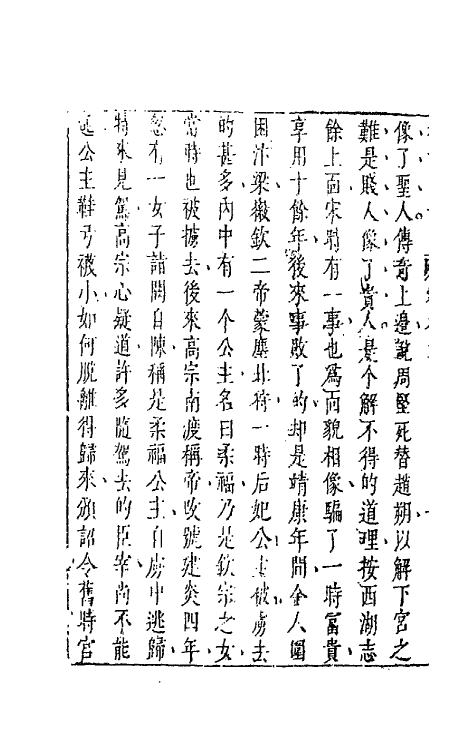 像了聖人傳奇上邊說周堅死替趙朔以解下宮之
難是賤人像了貴人是个解不得的道理按西湖志
餘上面宋時有一事也爲面貌相像騙了一時富貴
享用十餘年後來事敗了的却是靖康年間金人圍
困汴梁徽欽二帝蒙塵北狩一時后妃公主被虜去
的甚多內中有一个公主名曰柔福乃是欽宗之女
當時也被擄去後來高宗南渡稱帝改號建炎四年
忽有一女子詣闕自陳稱是柔福公主自虜中逃歸
特來見駕高宗心疑道許多隨駕去的臣宰尚不能
逃公主鞋弓襪小如何脫離得歸來頒詔令舊時宮